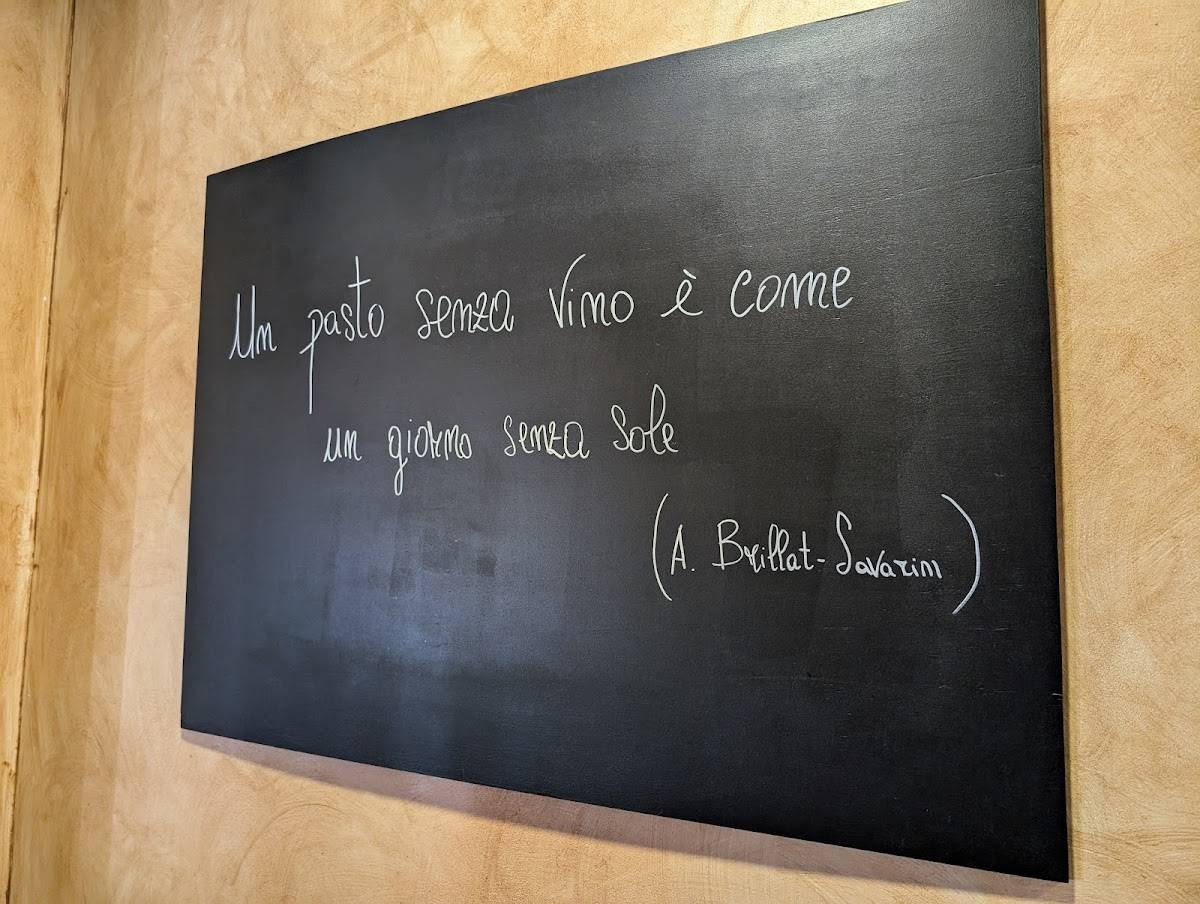 Un pasto senza vino è come
un giorno senza sole
(A. Brillat-Savarin)